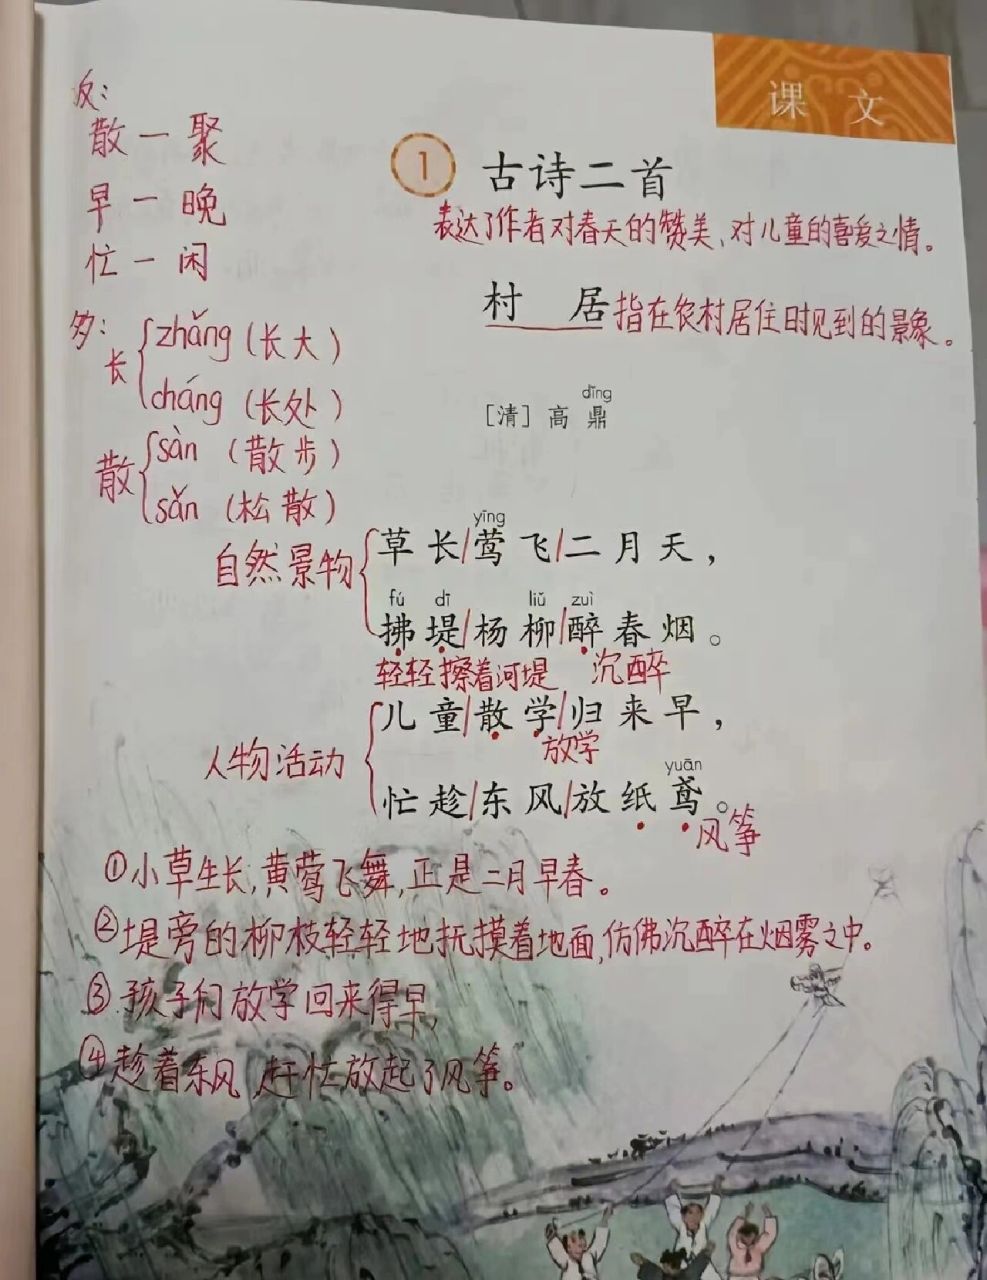 课文
反：
散－聚
早－晚
忙－闲
多：
长
zhǎng（长大）
cháng（长处）
散
sàn（散步）
sǎn（松散）
1 古诗二首
表达了作者对春天的赞美、对儿童的喜爱之情。
村 居 指在农村居住时见到的景象。
dǐng
［清］高 鼎
自然景物
yīng
草长/莺飞/二月天，
fú dī liǔ zuì
拂堤/杨柳/醉春烟。
轻轻擦着河堤 沉醉
人物活动
儿童/散学/归来早，
放学
yuān
忙趁/东风/放纸鸢。
风筝
①小草生长,黄莺飞舞,正是二月早春。
②堤旁的柳枝轻轻地抚摸着地面,仿佛沉醉在烟雾之中。
③孩子们放学回来得早,
④趁着东风,赶忙放起了风筝。